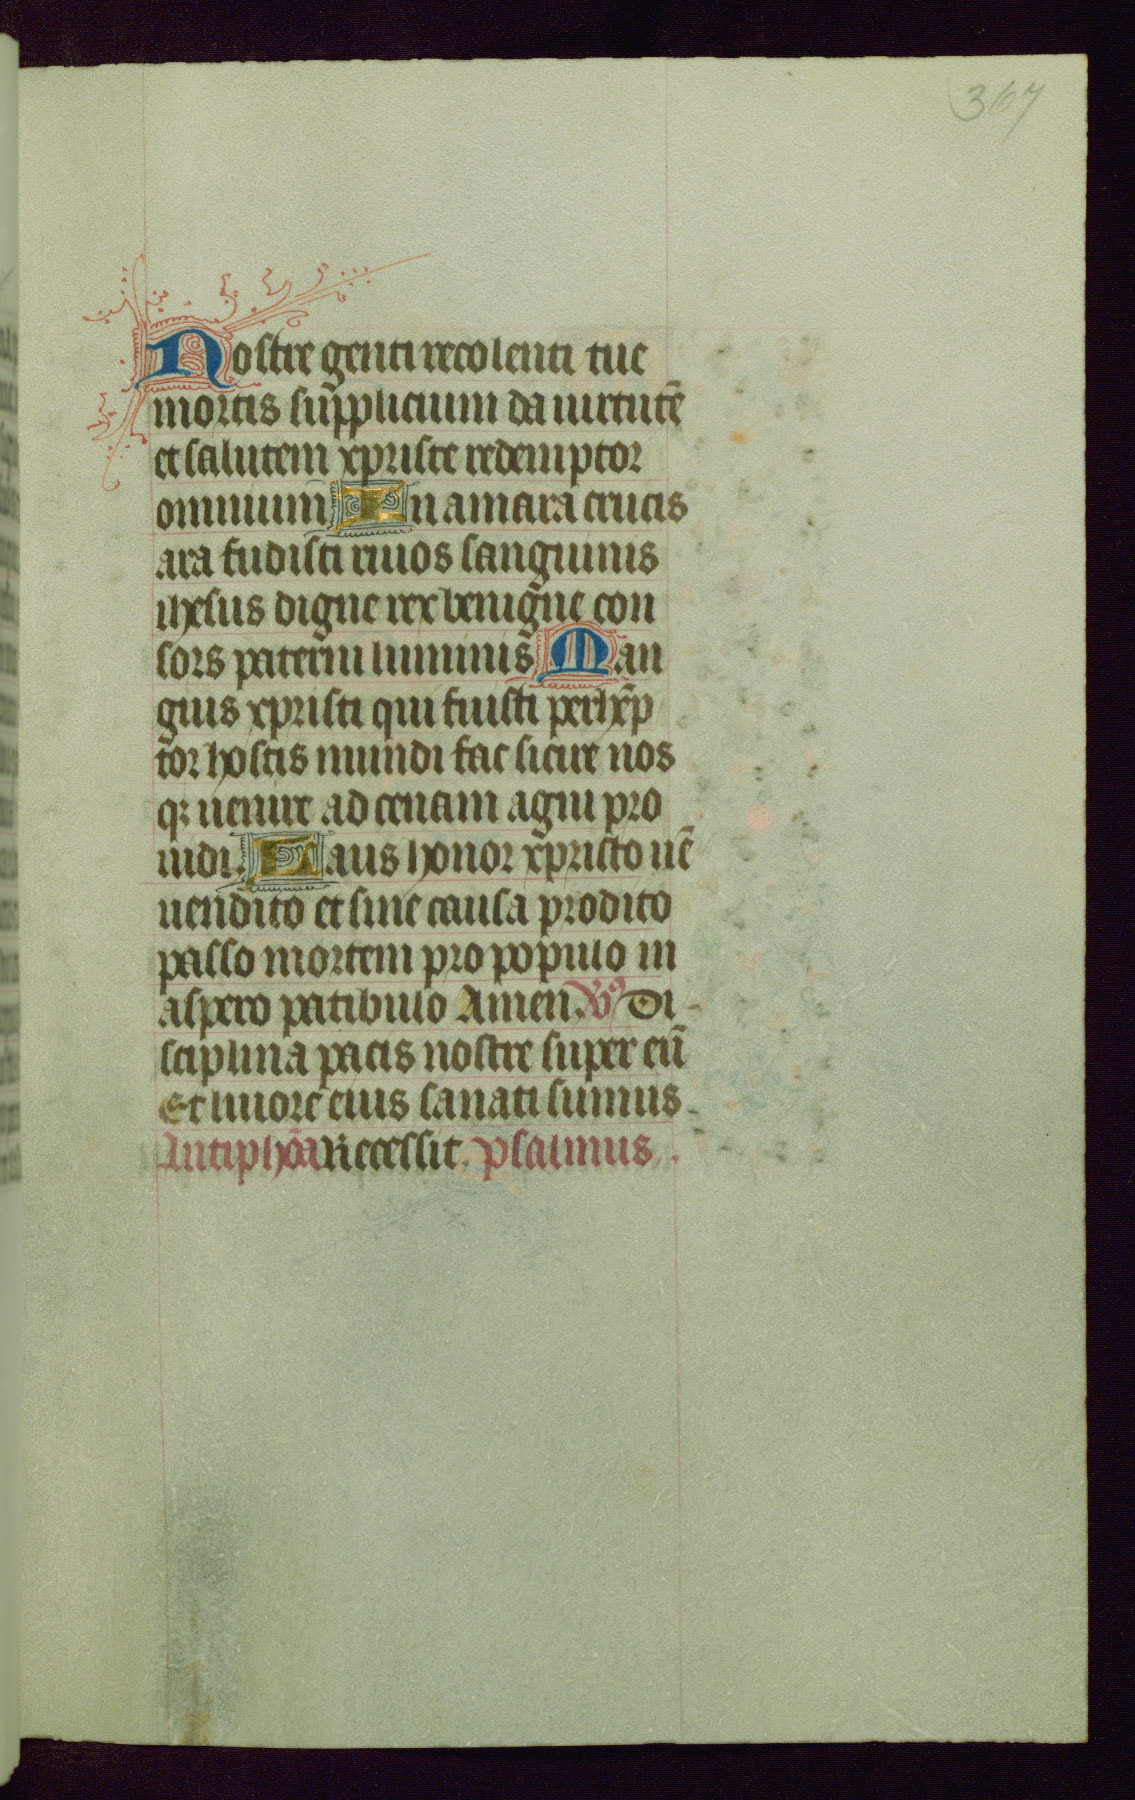 367
Nostre genti recolenti tue
mortis supplicium da uirtutē
et salutem xpriste redemptor
omnium In amara crucis
ara fudisti riuos sanguinis
ihesus digne rex benigne con
sors paterni luminis San
guis xpristi qui fuisti
hostis mundi fac sicire nos
qꝫ uenire ad cenam agni pro
uidi. Laus honor xpristo uē
uendito et sine causa prodito
passo mortem pro populo in
aspero patibulo Amen. Di-
sciplina pacis nostre super eū
Et liuore eius sanati sumus.
Antiphōa Recessit. psalmus.